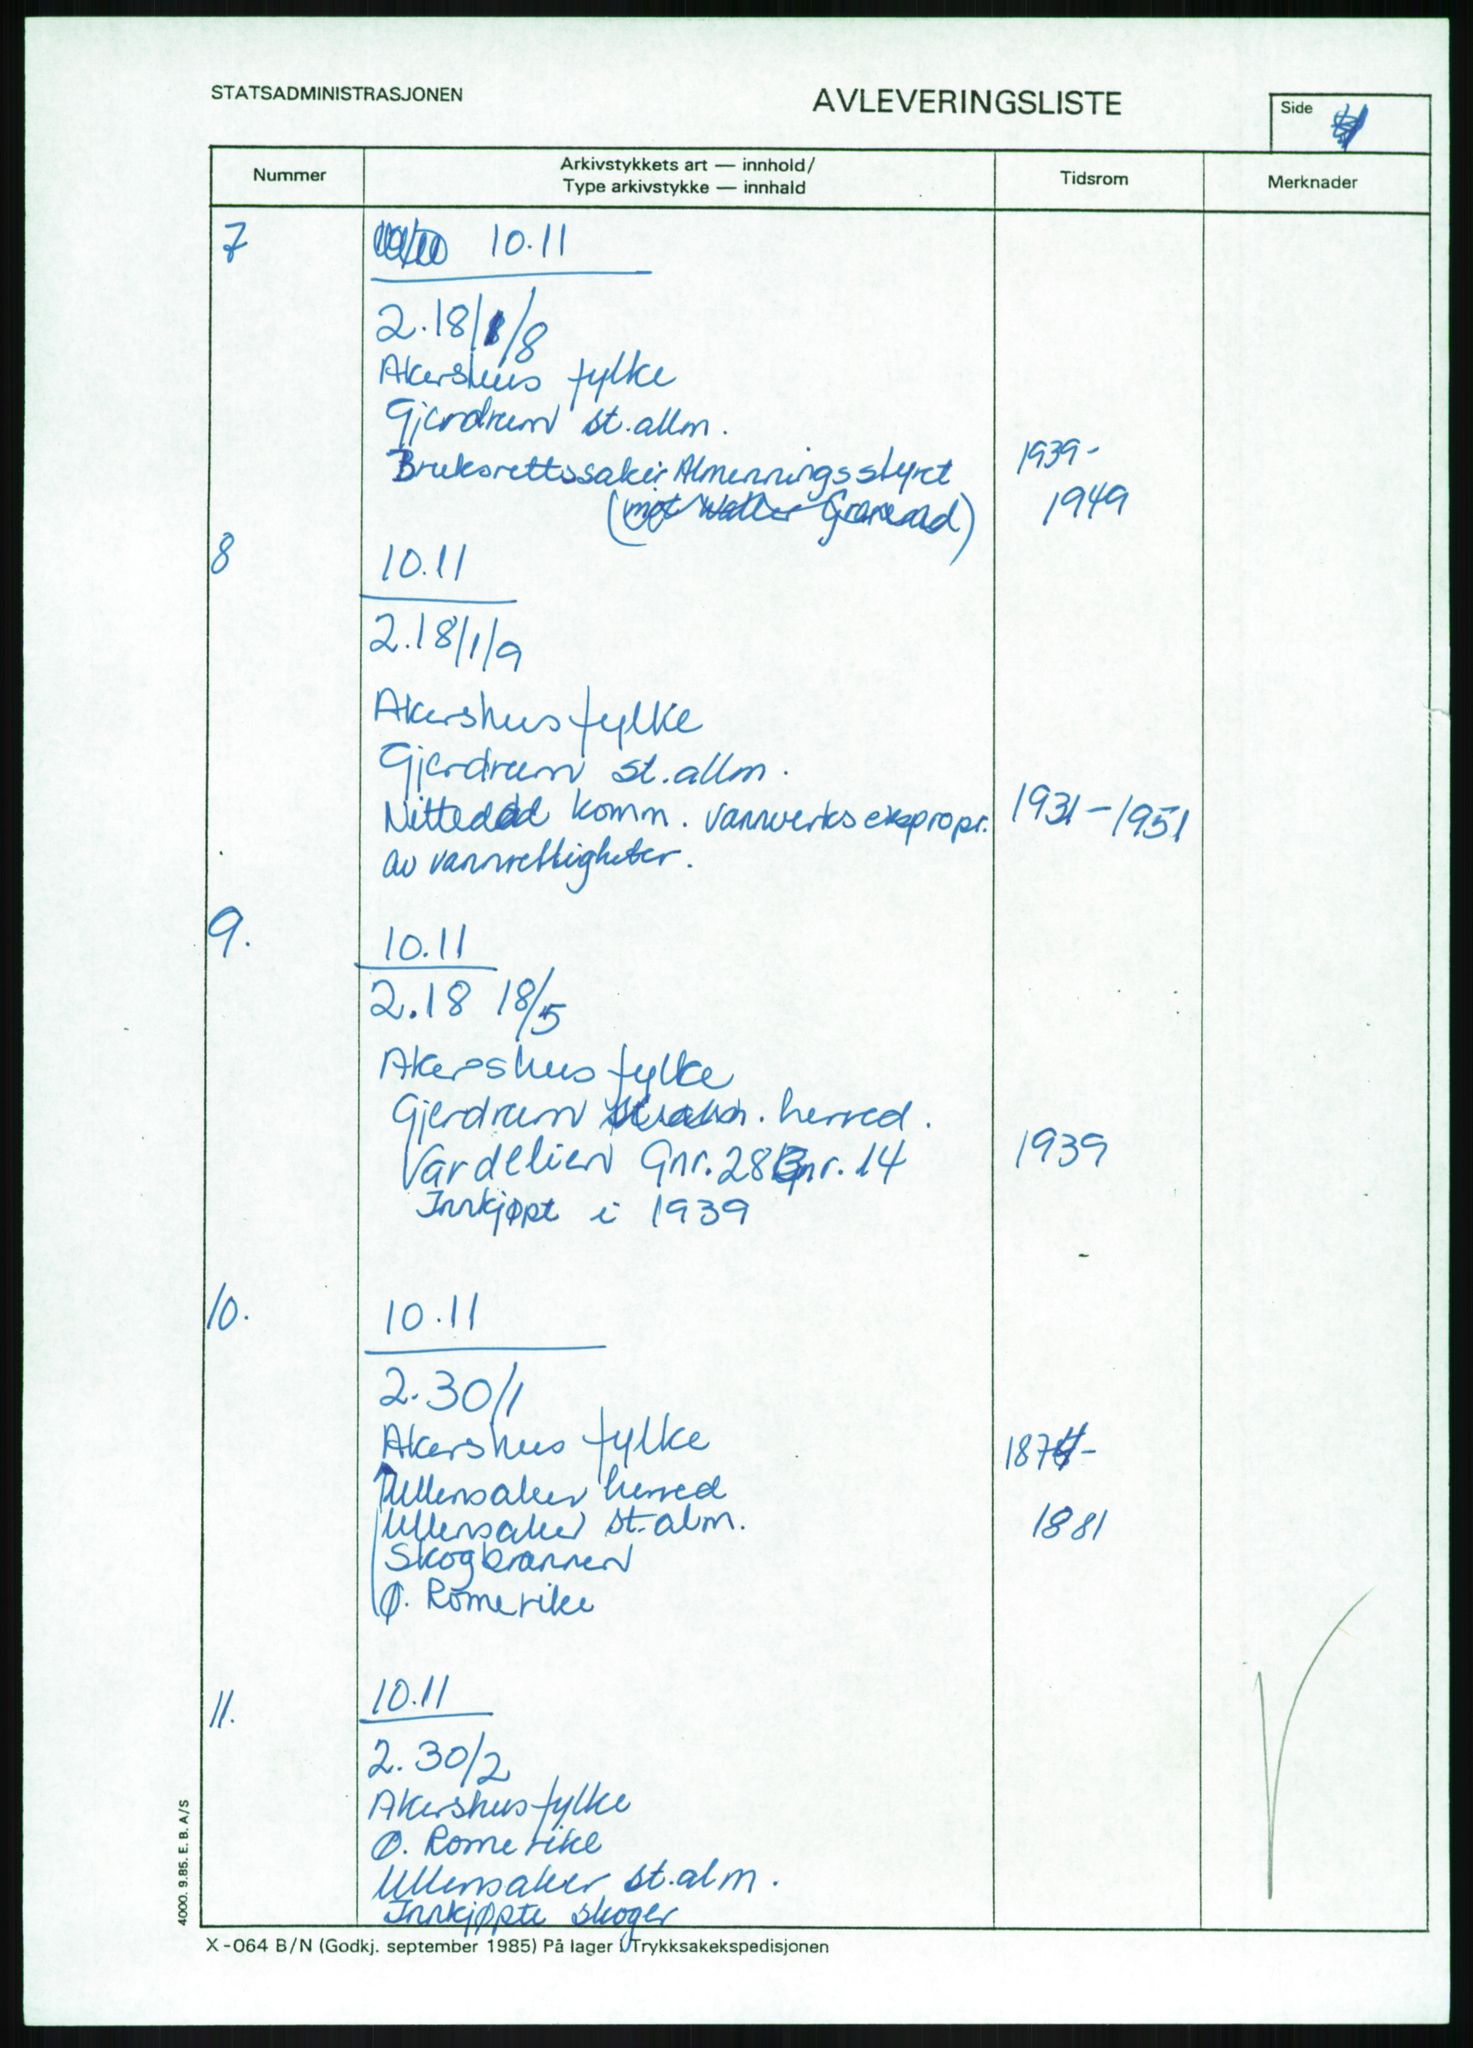 STATSADMINISTRASJONEN
AVLEVERINGSLISTE
Side
Nummer
Arkivstykkets art — innhold/
Type arkivstykke — innhald
Tidsrom
Merknader
7
10.11
2.18/1/8
Akershus fylke
Gjerdrum st.allm.
Bruksrettssaker Almenningsstyret
1939-
(mot Walter
1949
8
10.11
2.18/1/9
Akershus fylke
Gjerdrum st.allm.
Nittedal komm. vannverks expropr.
1931-1951
av vannrettigheter.
9.
10.11
2.18 18/5
Akershus fylke
Gjerdrum herred.
Vardelien Gnr.28 Bnr.14
1939
Innkjøpt i 1939
10.
10.11
2.30/1
Akershus fylke
1874-
Ullensaker herred
Ullensaker st.alm.
1881
Skogbrannen
Ø. Romerike
11.
10.11
2.30/2
Akershus fylke
Ø. Romerike
Ullensaker st.alm.
Innkjøpte skoger
4000. 9.85. E. B. A/S
X-064 B/N (Godkj. september 1985) På lager i Trykksakekspedisjonen